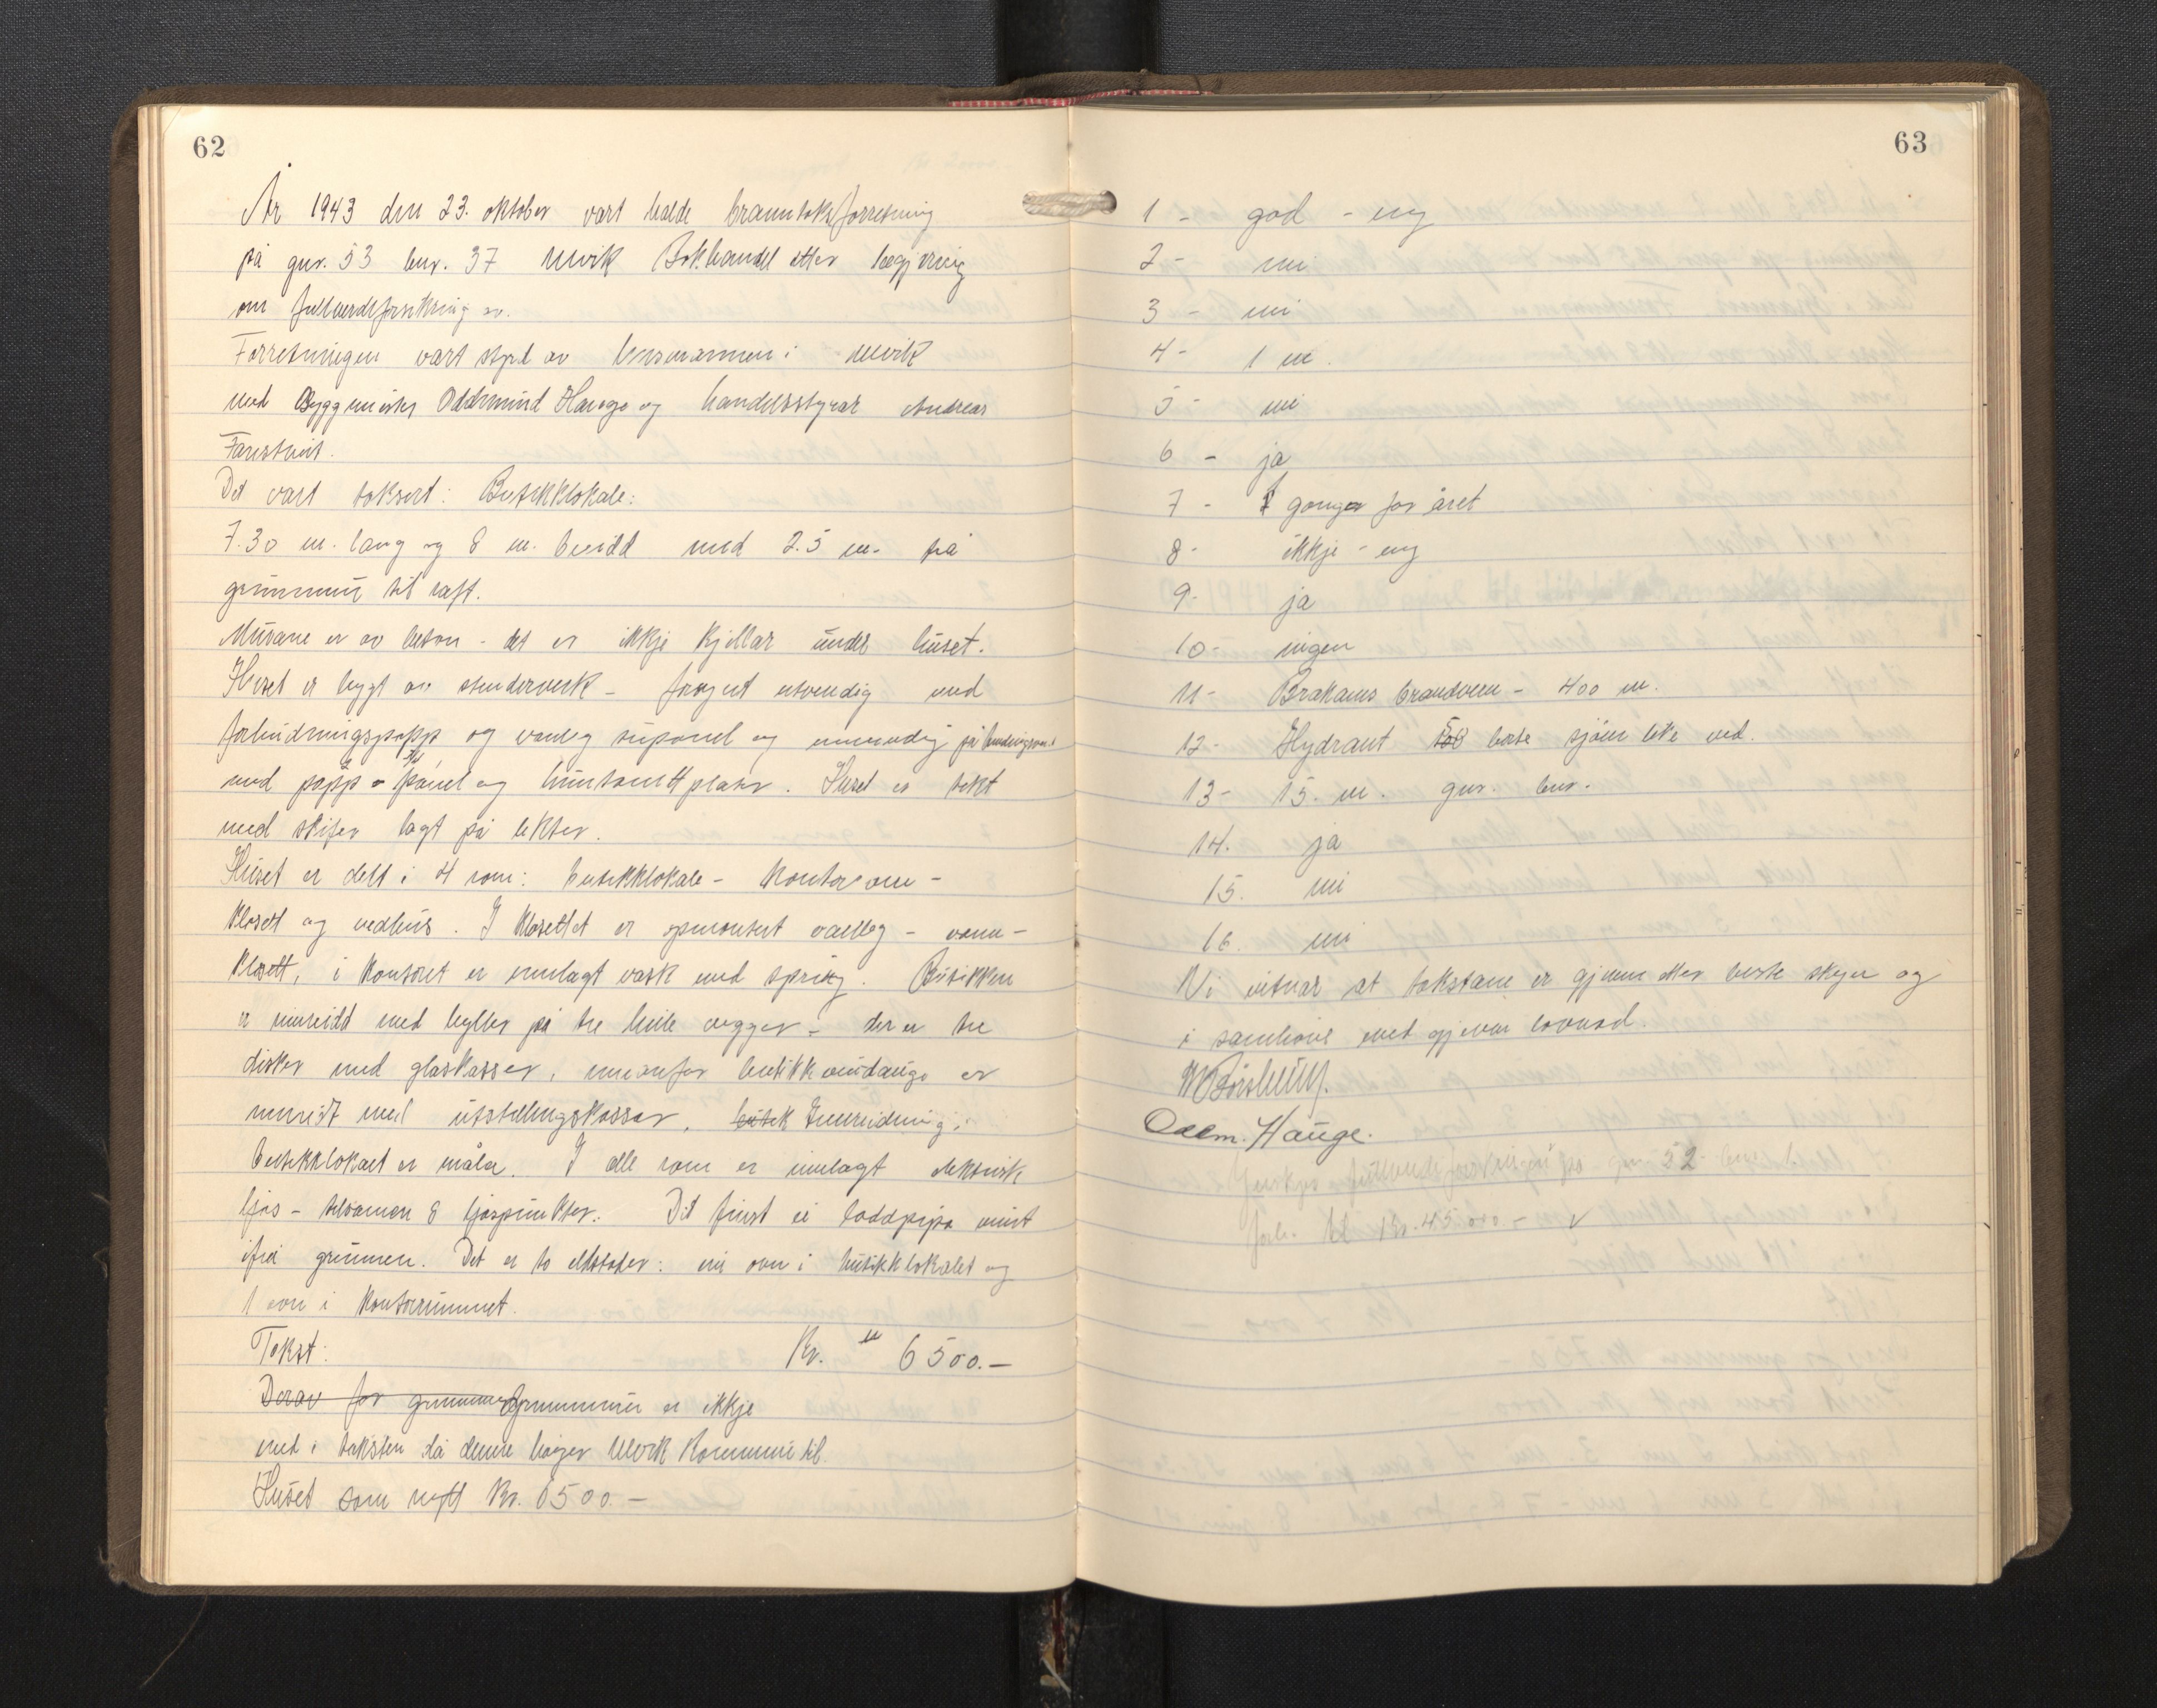 62
År 1943 den 23. oktober vart halde branntakstforretning
på gnr. 53 bnr. 37 Ulvik Bokhandel etter begjæring
om fullverdiforsikring av.
Forretningen vart styrd av lensmannen i Ulvik
med Byggmeister Oddmund Hauge og handelsstyrar Andreas
Det vart taksert: Butikklokale:
7.30 m. lang og 8 m. breidd med 2.5 m. frå
grunnmur til raft.
Murane er av betong - det er ikkje kjellar under huset.
Huset er bygt av stenderverk - forsynt utvendig med
forhudningspapp og vanleg supanel og innvendig
med papp - panel og huntonittplater. Huset er tekt
med skifer lagt på lekter.
Huset er delt i 4 rom: butikklokale - Kontorrom -
Klosett og vedhus. I Klosettet er opmontert vanleg - vann-
klosett, i Kontoret er innlagt vask med spring. Butikken
er innreidd med hyller på tre heile vegger - der er tre
disker med glaskasser, innanfor butikkvindauga er
innreidt med utstillingskasser. butik Innreidning i
butikklokalet er måla. I alle rom er innlagt elektrisk
ljos - tilsaman 8 ljospunkter. Det finst ei loddpipa murt
ifrå grunnen. Det er to eldstader: ein ovn i butikklokalet og
1 ovn i Kontorrummet.
Takst: Kr. 6500.-
Derav for grunnmur Grunnmuren er ikkje
med i taksten då denne høyrer Ulvik Kommune til.
Huset som nytt Kr. 6500.-
63
1 - god - ny
2 - nei
3 - nei
4 - 1 m.
5 - nei
6 - ja
7 - gonger for året
8 - ikkje - ny
9 - ja
10 - ingen
11 - Brakanes brandvern - 400 m.
12 - Hydrant 50 borte sjøen like ved.
13 - 15. m. gnr. bnr.
14. ja
15. nei
16. nei
Vi vitnar at takstane er gjevne etter beste skyn og
i samhøve med gjevne lovnad.
Oddm. Hauge.
fullverdiforsikringen på gnr. 52 bnr. 1.
Kr. 45.000.-